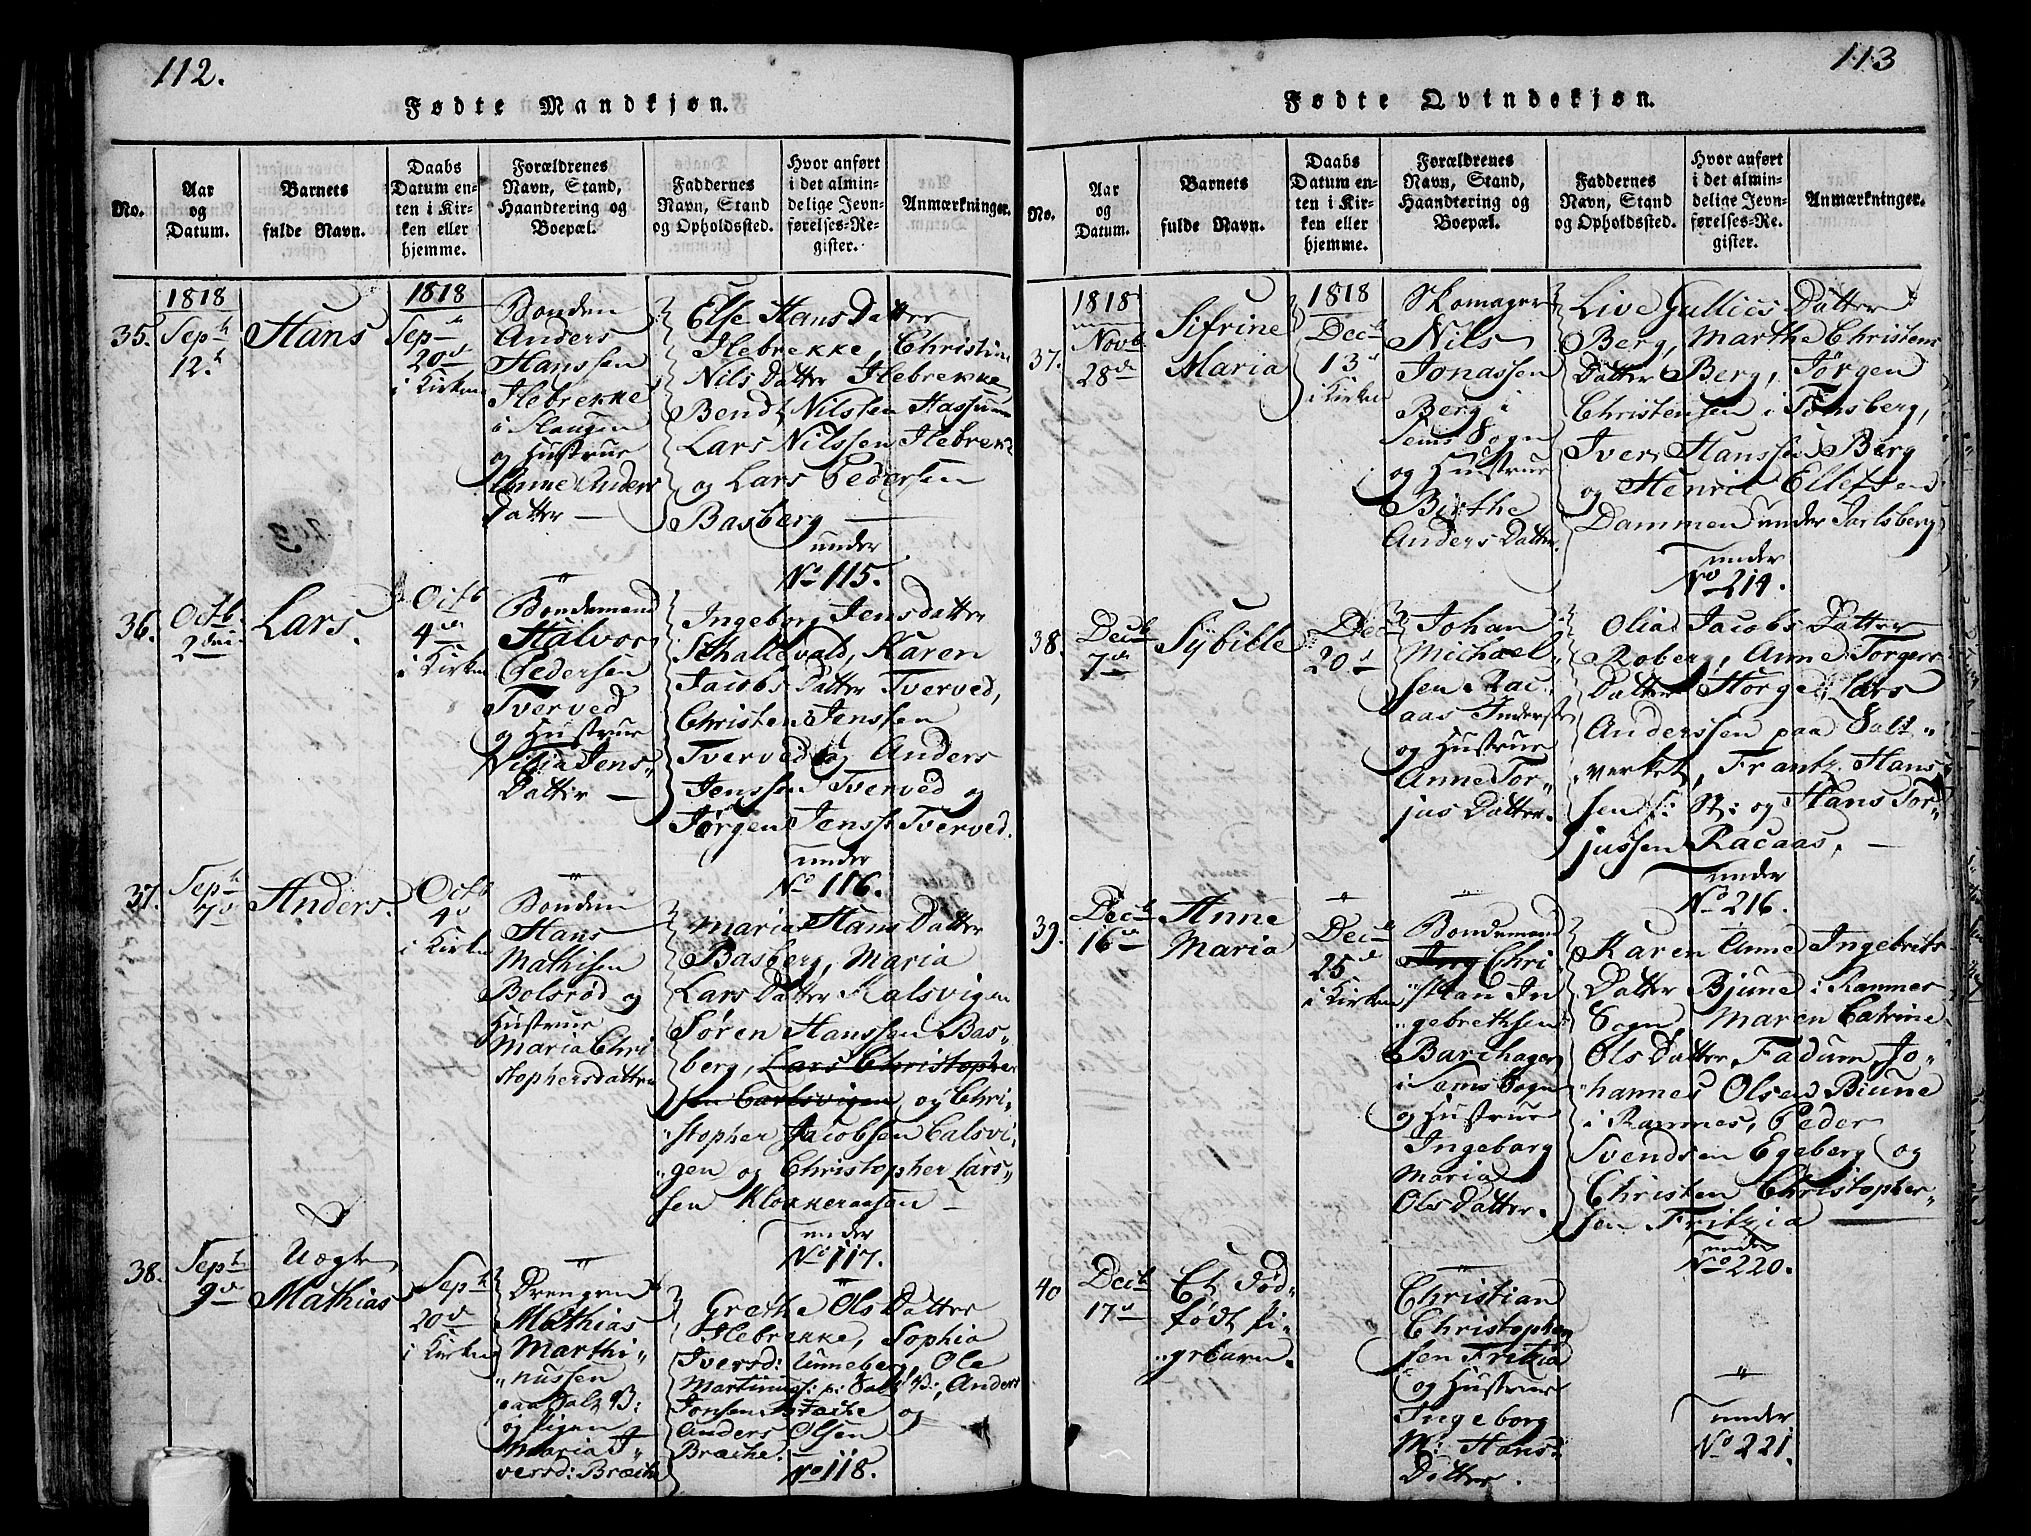 112.
Fødte Mandkjøn.
No.
Aar
og
Datum.
Barnets
fulde Navn.
Daabs
Datum en-
ten i Kir-
ken eller
hjemme.
Forældrenes
Navn, Stand,
Haandtering og
Boepæl.
Faddernes
Navn, Stand
og Opholdssted.
Hvor anført
i det almin-
delige Jevn-
førelses-Re-
gister.
Anmærkninger.
35.
1818
Sept
12.
Hans
1818
Sep
20d
i Kirken
Bonden
Anders
Hanssen
Ilebrekke
i Slaugen
og Hustrue
Anne Anders
Datter —
Else Hans Datter
Ilebrekke, Christine
Nils Datter Ilebrekke
Bendt Nilssen Hassum
Lars Nilssen Ilebrekk
og Lars Pedersen
Basberg —
under
No 115.
36.
Octb.
2den
Lars.
Octb
4de
i Kirken
"
Bondemand
Halvor
Pedersen
Tverved
og Hustrue
Jens
Datter —
Ingeborg Jensdatter
Schallevald, Karen
Jacobs Datter Tverved,
Christen Jenssen
Tverved og Anders
Jenssen Tverved og
Jørgen Jenss: Tverved.
under
No 116.
37.
Sept
7d
Anders.
Octb
4d
i Kirken
"
Bonden
Hans
Mathisen
Bolsrød og
Hustrue
Maria Chri
stophersdatter
Maria Hans Datter
Basberg, Maria
Lars Datter Kalsvigen
Søren Hanssen Bas-
berg, Lars Christopher
sen Carlsvigen og Chri-
"stopher Jacobsen Calsvi-
"gen og Christopher Lars-
sen Klokkeraasen —
under
No 117.
38.
Sept
9d
Uægte
Mathias
Sept
20d
i Kirken
"
Drengen
Mathias
Marthi-
"nussen
paa Salt V:
og Pigen
Maria I-
versd: Bræche
"
Grethe Ols Datter
Ilebrekke, Sophia
Iversd: Unneberg, Ole
Martinus: p: Salt V:, Anders
Jonsen Bræche og
Anders Olsen
Bræche.
No 118.
113
Fødte Qvindekjøn.
No.
Aar
og
Datum.
Barnets
fulde Navn.
Daabs
Datum en-
ten i Kir-
ken eller
hjemme.
Forældrenes
Navn, Stand,
Haandtering og
Boepæl.
Faddernes
Navn, Stand
og Opholdssted.
Hvor anført
i det almin-
delige Jevn-
førelses-Re-
gister.
Anmærkninger.
37.
1818
Novb
28de
Sifrine
Maria
1818
Decb
13d
i Kirken
Skomager
Nils
Jonassen
Berg i
Sems Sogn
og Hustrue
Birthe
Anders Datter.
Live Gullics Datter
Berg, Marthe Christens
Datter Berg, Jørgen
Christensen i Tønsberg,
Iver Hanssen Berg
og Henric Ellefsen
Dammen under Jarlsberg
under
No 214.
38.
Decb
7de
Sÿbille
Dec
20d
Johan
Michael
sen Rac
aas Inderst
og Hustrue
Anne Tor-
jus Datter.
Olia Jacobs Datter
Roberg, Anne Torgers
Datter Horge, Lars
Anderssen paa Salt "
verket, Frantz Hans
sen s: St: og Hans Tor-
jussen Racaas, —
under
No 216.
39.
Decb
16de
Anne
Maria
"
Decb
25d
i Kirken
"
Bondemand
Chri
"stian In
"gebrethsen
Barchager
i Sems Sogn
og Hustrue
Ingeborg
Maria
Ols Datter.
Karen Anne Ingebrets
Datter Bjune i Ramnes
Sogn, Maren Catrine
Ols Datter Fadum, Jo-
"hannes Olsen Biune
i Ramnes, Peder
Svendsen Egeberg og
Christen Christopher-
sen Fritzia —
under
No 220.
40
Decb
17d
Et død-
født Pi-
"gebarn.
"
Christian
Christopher
sen Fritzia
og Hustrue
Ingeborg
M: Hans
Datter.
"
under
No 221.